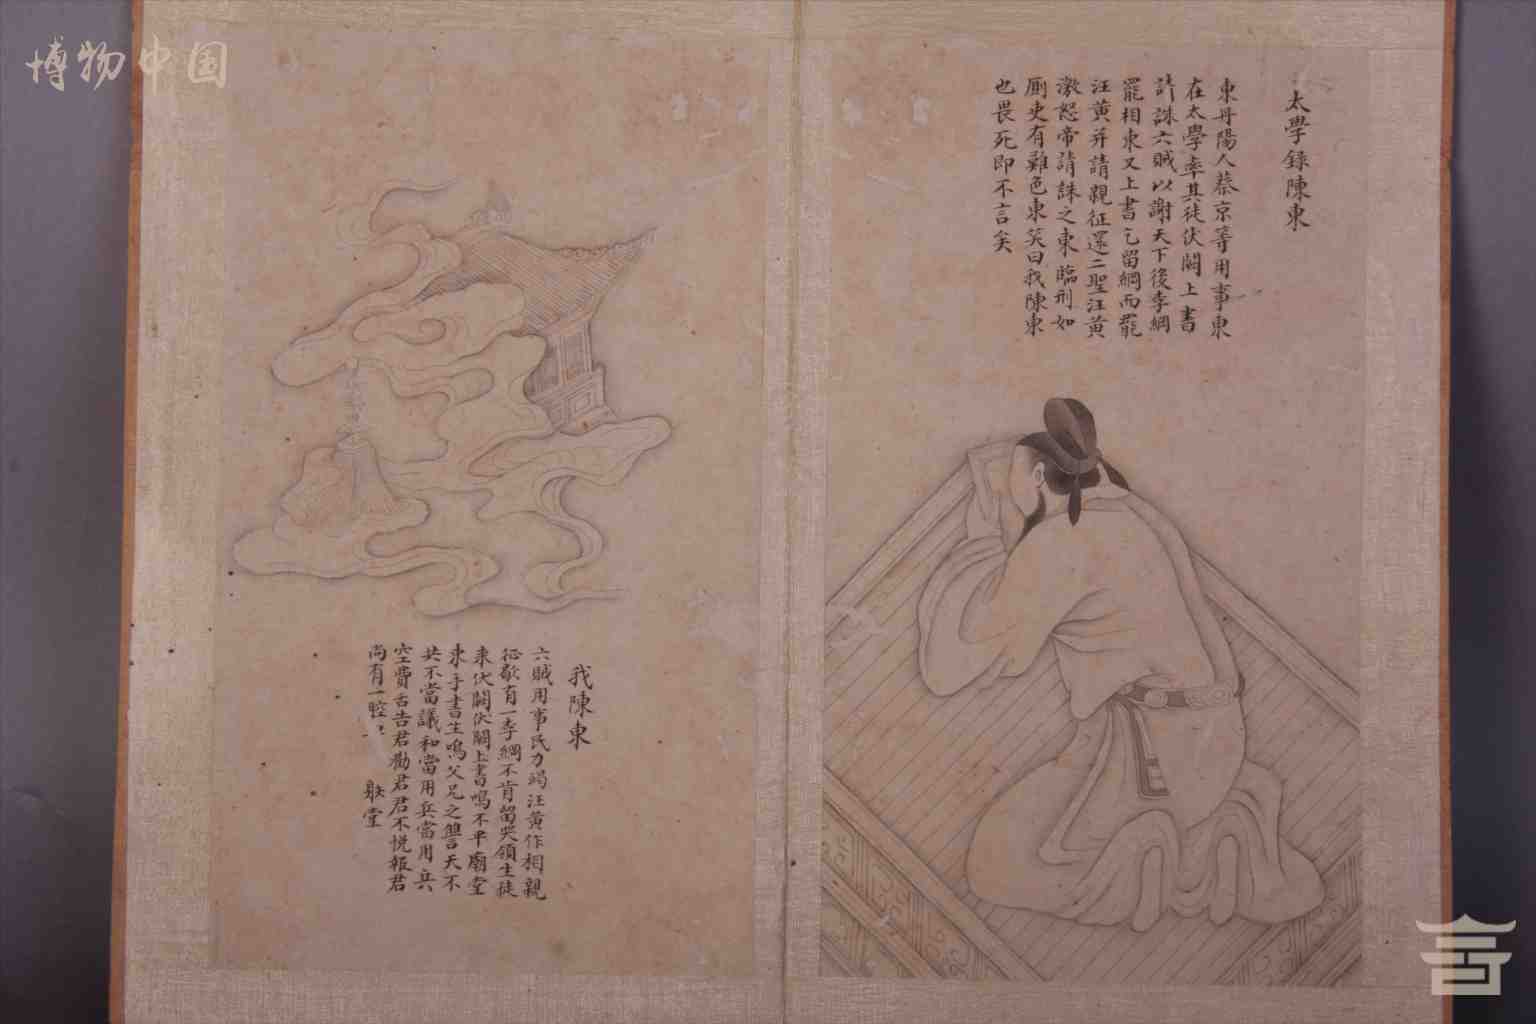 博物中国
太學錄陳東
東丹陽人蔡京等用事東
在太學率其徒伏闕上書
許誅六賊以謝天下後李綱
罷相東又上書乞留綱而罷
汪黃并請親征還二聖汪黃
激怒帝請誅之東臨刑如
厠吏有難色東笑曰我陳東
也畏死即不言矣
我陳東
六賊用事民力竭汪黃作相親
征歇有一李綱不肯留哭領生徒
来伏闕伏闕上書鳴不平廟堂
束手書生鳴父兄之讐天不
共不當議和當用兵當用兵
空費舌告君勸君君不悅報君
尚有一腔
堂